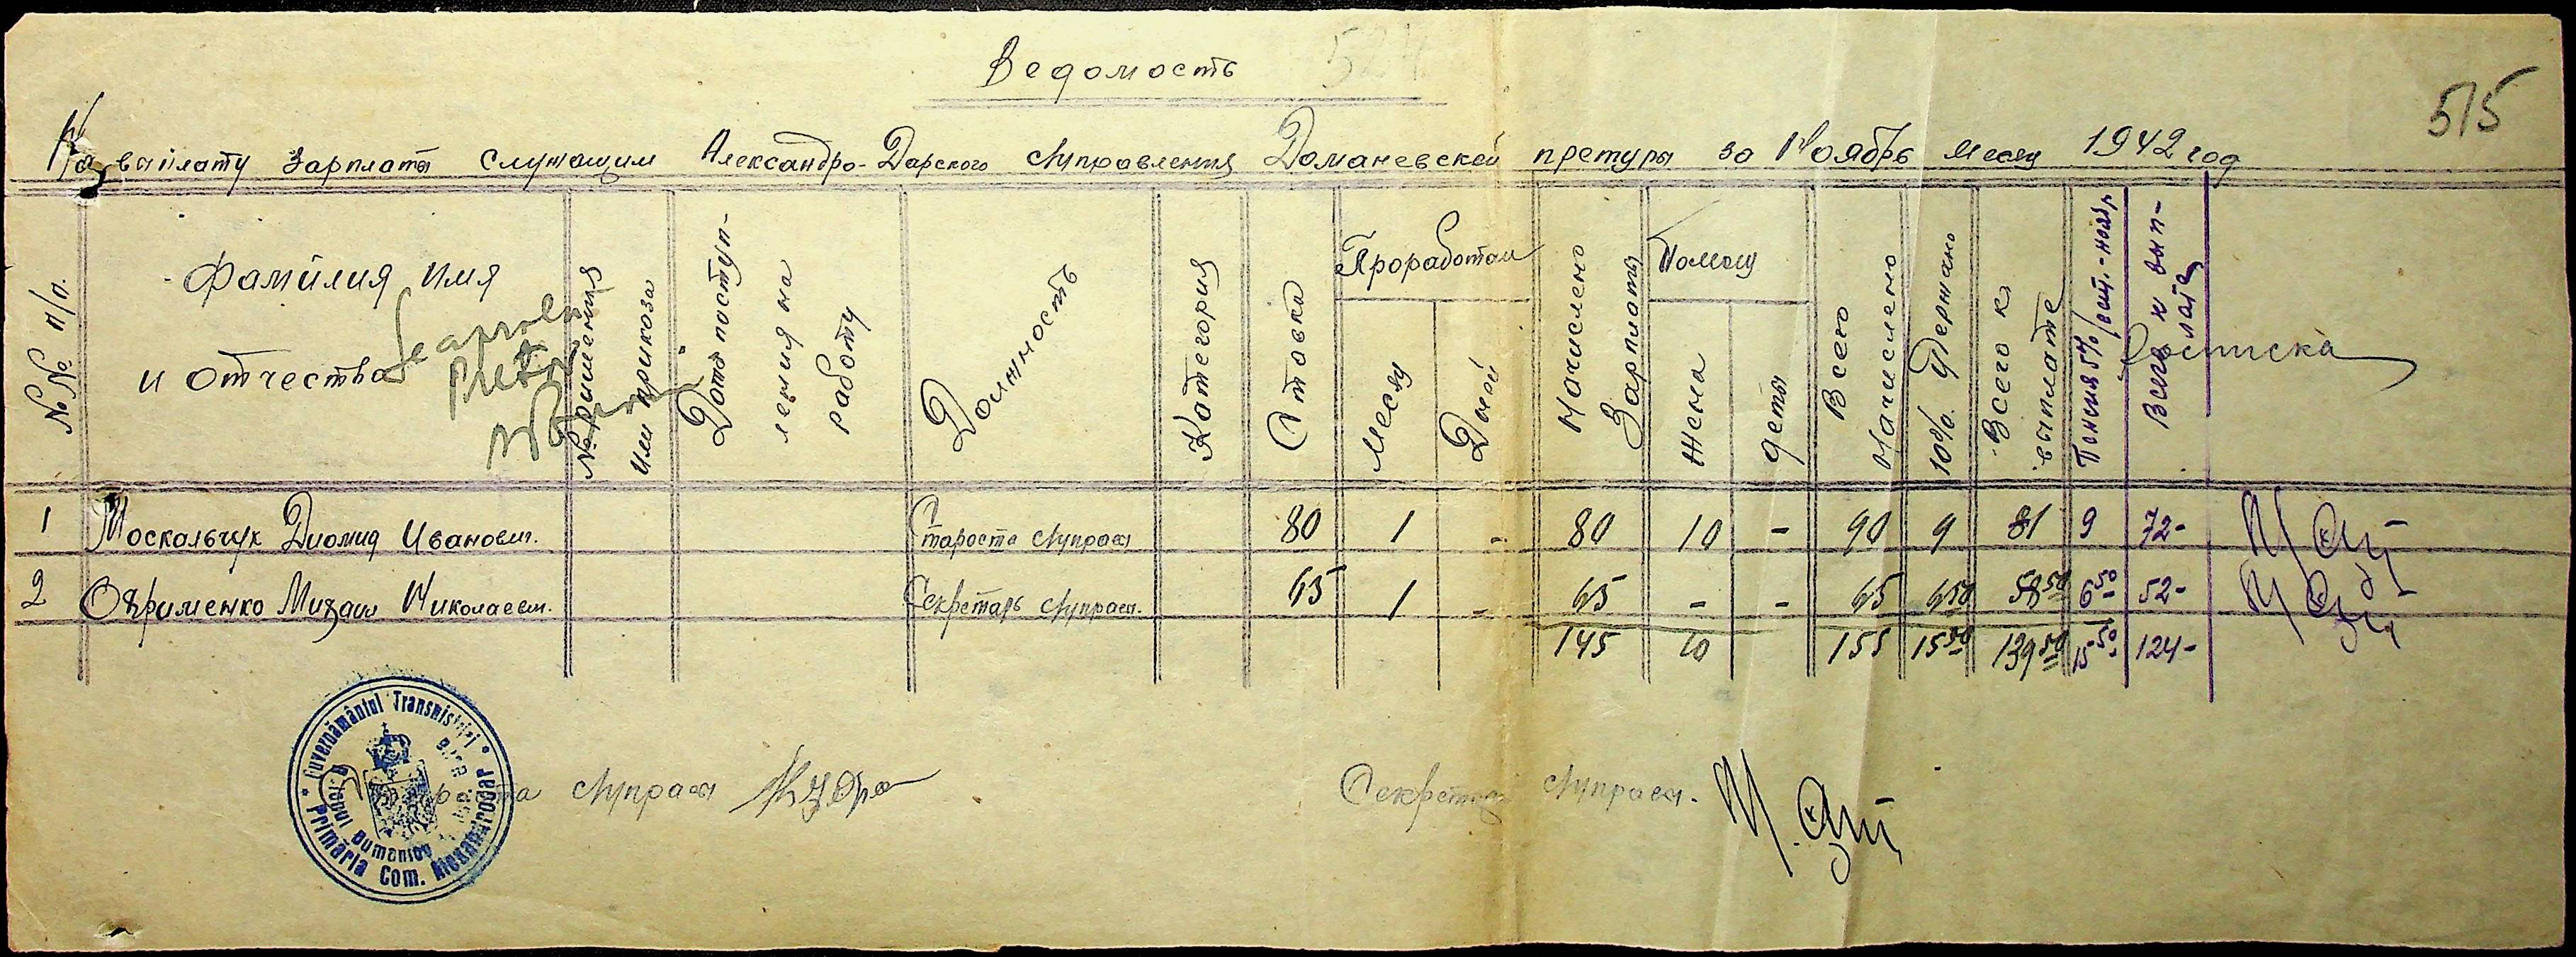 Ведомость
515
На выплату зарплаты служащим Александро-Дарского с/управления Доманевской претуры за Ноябрь месяц 1942 год
№№ п/п.
Фамилия имя
и отчество
№ решения
или приказа
Дата поступ-
ления на
работу
Должность
Категория
Ставка
Проработал
Месяц
Дней
Начислено
Зарплаты
Помощ
Жена
дети
Всего
Начислено
10% Удержано
Всего к
выплате
Пенсия 5%
Всего к вып-
лате
Росписка
1 Москальчук Диомид Иванович. Староста с/управл 80 1 - 80 10 - 90 9 81 9 72-
2 Охрименко Михаил Николаевич. Секретарь с/управл. 65 1 - 65 - - 65 6 50 58 50 6 50 52-
145 10 155 15 50 139 50 15 50 124-
Guvernământul Transnistriei
Primăria Com. Alexandrodar
Староста с/управл
Секретарь с/управл.